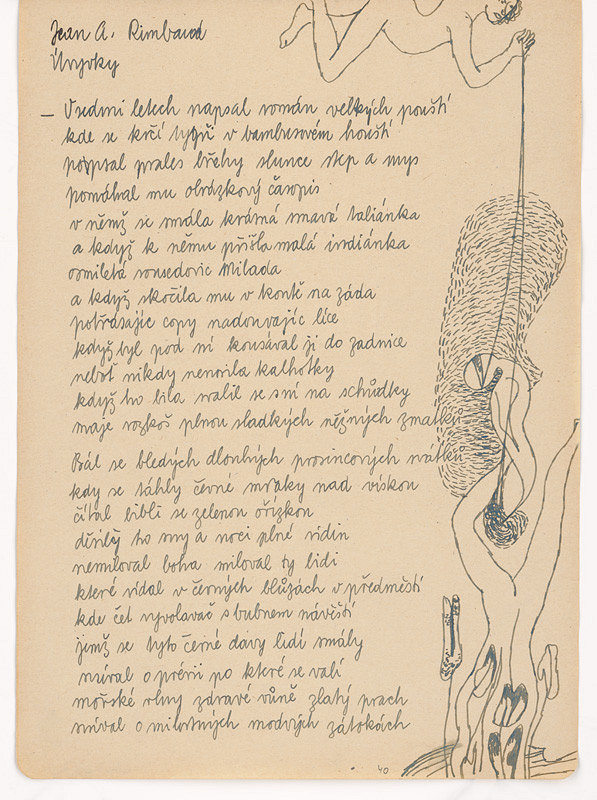 Jean A. Rimbaud
Úryvky
– V sedmi letech napsal román velkých pouští
kde se krčí tygři v bambusovém houští
popsal prales břehy slunce step a mys
pomáhal mu obrázkový časopis
v němž se smála krásná smavá taliánka
a když k němu přišla malá indiánka
osmiletá sousedovic Milada
a když skočila mu v koutě na záda
potřásajíc copy nadouvajíc líce
když byl pod ní kousával ji do zadnice
neboť nikdy nenosila kalhotky
když ho bila valil se s ní na schůdky
maje rozkoš plnou sladkých něžných zmatků
Bál se bledých dlouhých prosincových svátků
kdy se táhly černé mraky nad vískou
čítal bibli se zelenou ořízkou
děsily ho sny a noci plné vidin
nemiloval boha miloval ty lidi
které vídal v černých blůzách v předměstí
kde čet vyvolavač s bubnem návěští
jemž se tyto černé davy lidí smály
sníval o prérii po které se valí
mořské vlny zdravé vůně zlatý prach
sníval o milostných modrých zátokách
40